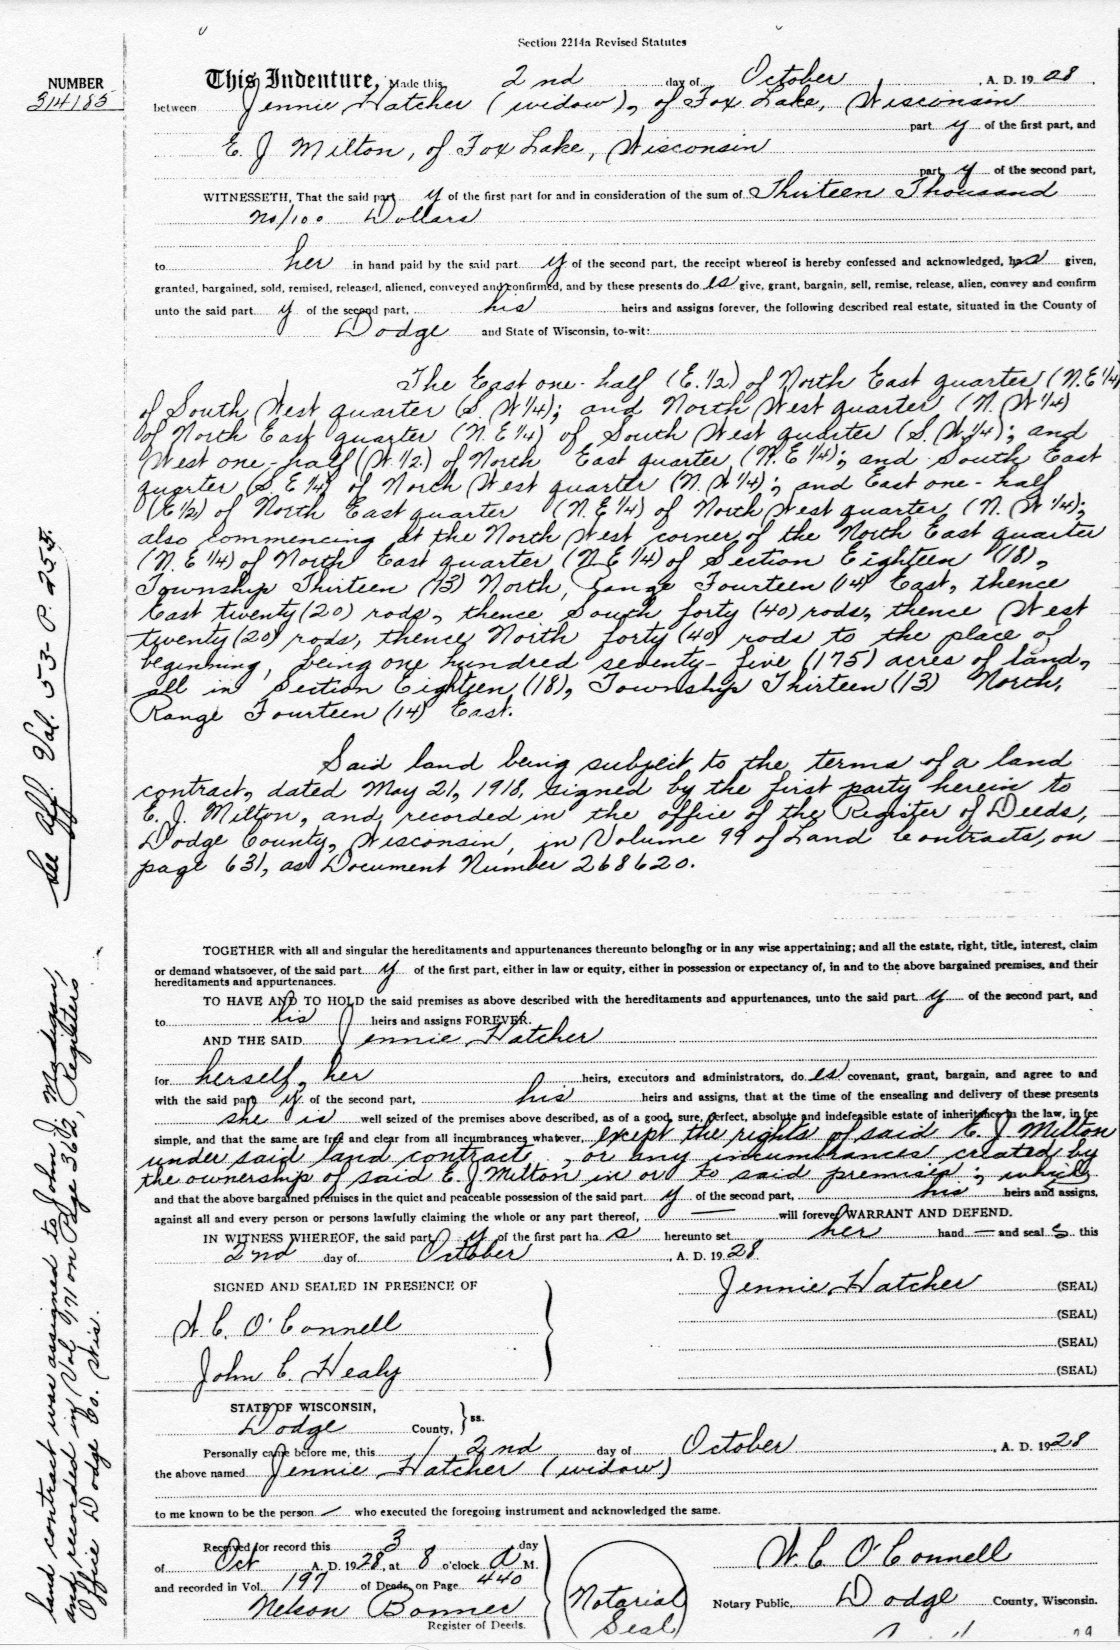 Section 2214a Revised Statutes
NUMBER
314185
This Indenture, Made this 2nd day of October, A. D. 1928.
between Jennie Hatcher (widow), of Fox Lake, Wisconsin
part y of the first part, and
E. J Milton, of Fox Lake, Wisconsin
part y of the second part,
WITNESSETH, That the said part y of the first part for and in consideration of the sum of Thirteen Thousand
no/100 Dollars
to her in hand paid by the said part y of the second part, the receipt whereof is hereby confessed and acknowledged, has given,
granted, bargained, sold, remised, released, aliened, conveyed and confirmed, and by these presents do es give, grant, bargain, sell, remise, release, alien, convey and confirm
unto the said part y of the second part, his heirs and assigns forever, the following described real estate, situated in the County of
Dodge and State of Wisconsin, to-wit:
The East one-half (E.1/2) of North East quarter (N.E 1/4)
of South West quarter (S. W 1/4); and North West quarter (N. W 1/4)
of North East quarter (N. E 1/4) of South West quarter (S. W. 1/4); and
West one-half (W. 1/2.) of North East quarter (N. E 1/4); and South East
quarter (S E 1/4) of North West quarter (N. W 1/4); and East one-half
(E 1/2) of North East quarter (N. E 1/4) of North West quarter (N. W 1/4);
also commencing at the North West corner of the North East quarter
(N. E 1/4) of North East quarter (N. E 1/4) of Section Eighteen (18),
Township Thirteen (13) North, Range Fourteen (14) East, thence
East twenty (20) rods, thence South forty (40) rods, thence West
twenty (20) rods, thence North forty (40) rods to the place of
beginning, being one hundred seventy-five (175) acres of land,
all in Section Eighteen (18), Township Thirteen (13) North,
Range Fourteen (14) East.
Said land being subject to the terms of a land
contract, dated May 21, 1918, signed by the first party herein to
E. J. Milton, and recorded in the office of the Register of Deeds,
Dodge County, Wisconsin, in Volume 99 of Land Contracts, on
page 631, as Document Number 268620.
TOGETHER with all and singular the hereditaments and appurtenances thereunto belonging or in any wise appertaining; and all the estate, right, title, interest, claim
or demand whatsoever, of the said part y of the first part, either in law or equity, either in possession or expectancy of, in and to the above bargained premises, and their
hereditaments and appurtenances.
TO HAVE AND TO HOLD the said premises as above described with the hereditaments and appurtenances, unto the said part y of the second part, and
to his heirs and assigns FOREVER.
AND THE SAID Jennie Hatcher
for herself, her heirs, executors and administrators, do es covenant, grant, bargain, and agree to and
with the said part y of the second part, his heirs and assigns, that at the time of the ensealing and delivery of these presents
she is well seized of the premises above described, as of a good, sure, perfect, absolute and indefeasible estate of inheritance in the law, in fee
simple, and that the same are free and clear from all incumbrances whatever, except the rights of said E. J Milton
under said land contract, or any incumbrances created by
the ownership of said E. J Milton in or to said premises; which
and that the above bargained premises in the quiet and peaceable possession of the said part y of the second part, his heirs and assigns,
against all and every person or persons lawfully claiming the whole or any part thereof, — will forever WARRANT AND DEFEND.
IN WITNESS WHEREOF, the said part y of the first part ha s hereunto set her hand — and seal s this
2nd day of October, A. D. 1928.
SIGNED AND SEALED IN PRESENCE OF
W. C. O'Connell
John C. Healy
Jennie Hatcher (SEAL)
(SEAL)
(SEAL)
(SEAL)
STATE OF WISCONSIN,
Dodge County, } ss.
Personally came before me, this 2nd day of October, A. D. 1928
the above named Jennie Hatcher (widow)
to me known to be the person — who executed the foregoing instrument and acknowledged the same.
Received for record this 3 day
of Oct A. D. 1928, at 8 o'clock A M.
and recorded in Vol. 197 of Deeds, on Page 440
Nelson Bonner
Register of Deeds.
Notarial
Seal
W. C O'Connell
Notary Public, Dodge County, Wisconsin.
See Aff. Vol. 53- P. 255.
land contract was assigned to John J. Madigan,
and recorded in Vol 171 on Page 362, Registers
Office Dodge Co. Wis.